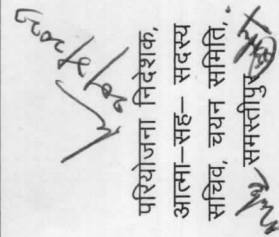 परियोजना निदेशक,
आत्मा–सह– सदस्य
सचिव, चयन समिति,
समस्तीपुर